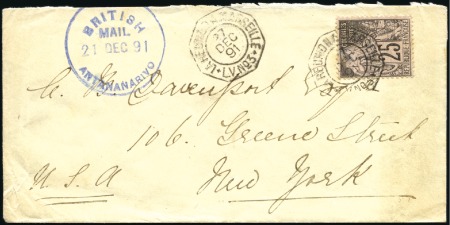 BRITISH
MAIL
21 DEC 91
ANTANANARIVO
LA RÉUNION A MARSEILLE
L.V. Nº
27
DEC
91
25
C. B. Davenport Esq
106. Greene Street
New York
U.S.A